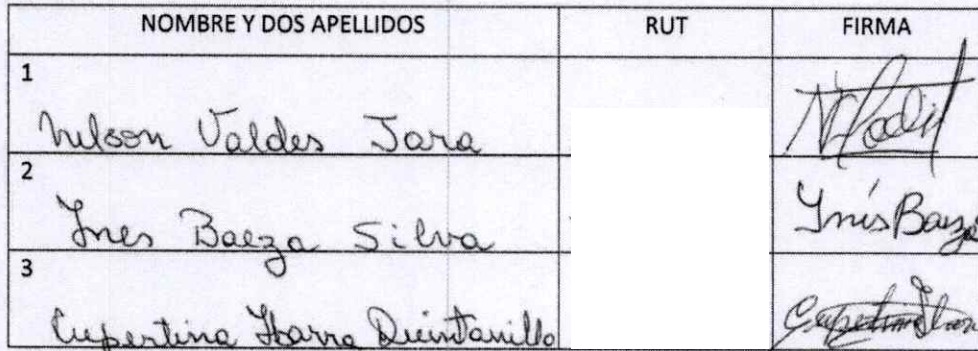 NOMBRE Y DOS APELLIDOS RUT FIRMA
1
Nelson Valdes Jara
2
Ines Baeza Silva Inés Baeza
3
Cupertina Ibarra Quintanilla